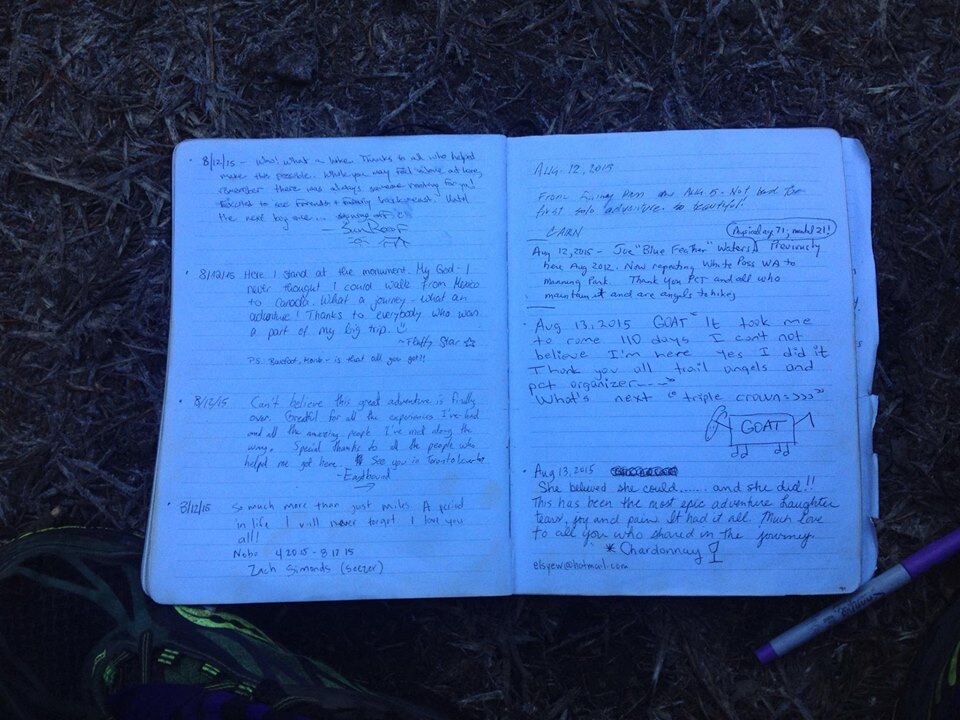 8/12/15 - Who! What a hike. Thanks to all who helped
make this possible. While you may feel alone out here,
remember there was always someone rooting for you!
Excited to see Friends + Family back east. Until
the next big one... signing off
- SunRoof
8/12/15 Here I stand at the monument. My God - I
never thought I could walk from Mexico
to Canada. What a journey - what an
adventure! Thanks to everybody who was
a part of my big trip. :)
~Fluffy Star ☆
P.S. Barefoot, - is that all you got?!
8/13/15 Can't believe this great adventure is finally
over. Grateful for all the experiences I've had
and all the amazing people I've met along the
way. Special thanks to all the people who
helped me get here. See you in Toronto
- Eastbound
→
8/12/15 So much more than just miles. A period
in life I will never forget I love you
all!
Nobo 4 20 15 - 8 17 15
Zach Simonds
AUG. 12, 2015
From Pass on AUG. 5. Not bad for
first solo adventure. So beautiful!
CAIRN
Physical age 71; mental 21!
Aug 12, 2015 - Joe "Blue Feather" Waters Previously
here Aug 2012. Now repeating White Pass WA to
Manning Park. Thank you PCT and all who
maintain it and are angels to hikers
Aug 13, 2015 GOAT "It took me
to come 110 days I can't not
believe I'm here Yes I did it
Thank you all trail angels and
pct organizer----"
What's next "triple crown>>>>"
GOAT
Aug 13, 2015
She believed she could....... and she did!!
This has been the most epic adventure Laughter
tears, joy and pain. It had it all. Much love
to all you who shared in the journey.
* Chardonnay
elsyew@hotmail.com